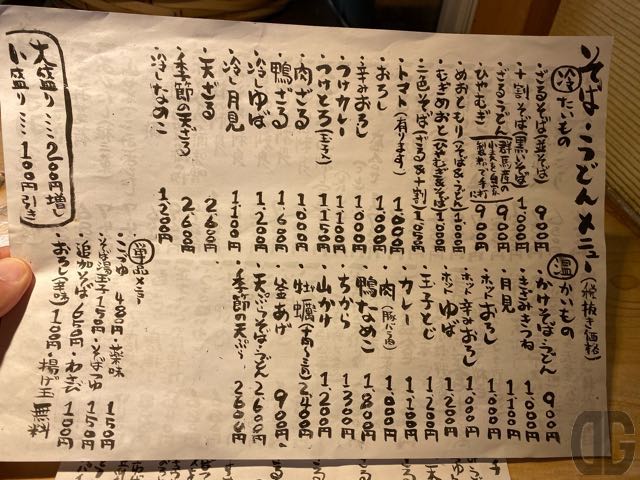 そば・うどんメニュー
(税抜き価格)
冷たいもの
・ざるそば(並そば) 900円
・十割そば(黒いそば) 1,000円
・ざるうどん 900円
・ひやむぎ 900円
・めおともり(そば&うどん) 1000円
・むぎめおと(ひやむぎ&そば) 1000円
・二色そば(ざる&十割) 1050円
・トマト(有ります) 1,000円
・おろし 1000円
・辛みおろし 1000円
・つけカレー 1100円
・つけとろ(玉子入) 1150円
・肉ざる 1000円
・鴨ざる 1,680円
・冷しゆば 1,200円
・冷し月見 1,100円
・天ざる 2,600円
・季節の天ざる 2,600円
・冷しなめこ 1,200円
大盛り ミミ 200円増し
小盛り ミミ 100円引き
温かいもの
・かけそば・うどん 900円
・きざみきつね 1000円
・月見 1,100円
・ホットおろし 1000円
・ホット辛みおろし 1000円
・ホットゆば 1200円
・玉子とじ 1200円
・カレー 1100円
・肉 1000円
・鴨なめこ 1,800円
・ちから 1,300円
・山かけ 1,200円
・牡蠣 2,400円
・釜あげ 900円
・天ぷらそば・うどん 2600円
・季節の天ぷら 2600円
単品メニュー
・こつゆ 480円
・薬味 150円
・そば湯玉子 150円
・そばつゆ 150円
・追加そば 650円
・わさび 100円
・おろし(辛味) 100円
・揚げ玉 無料
DG